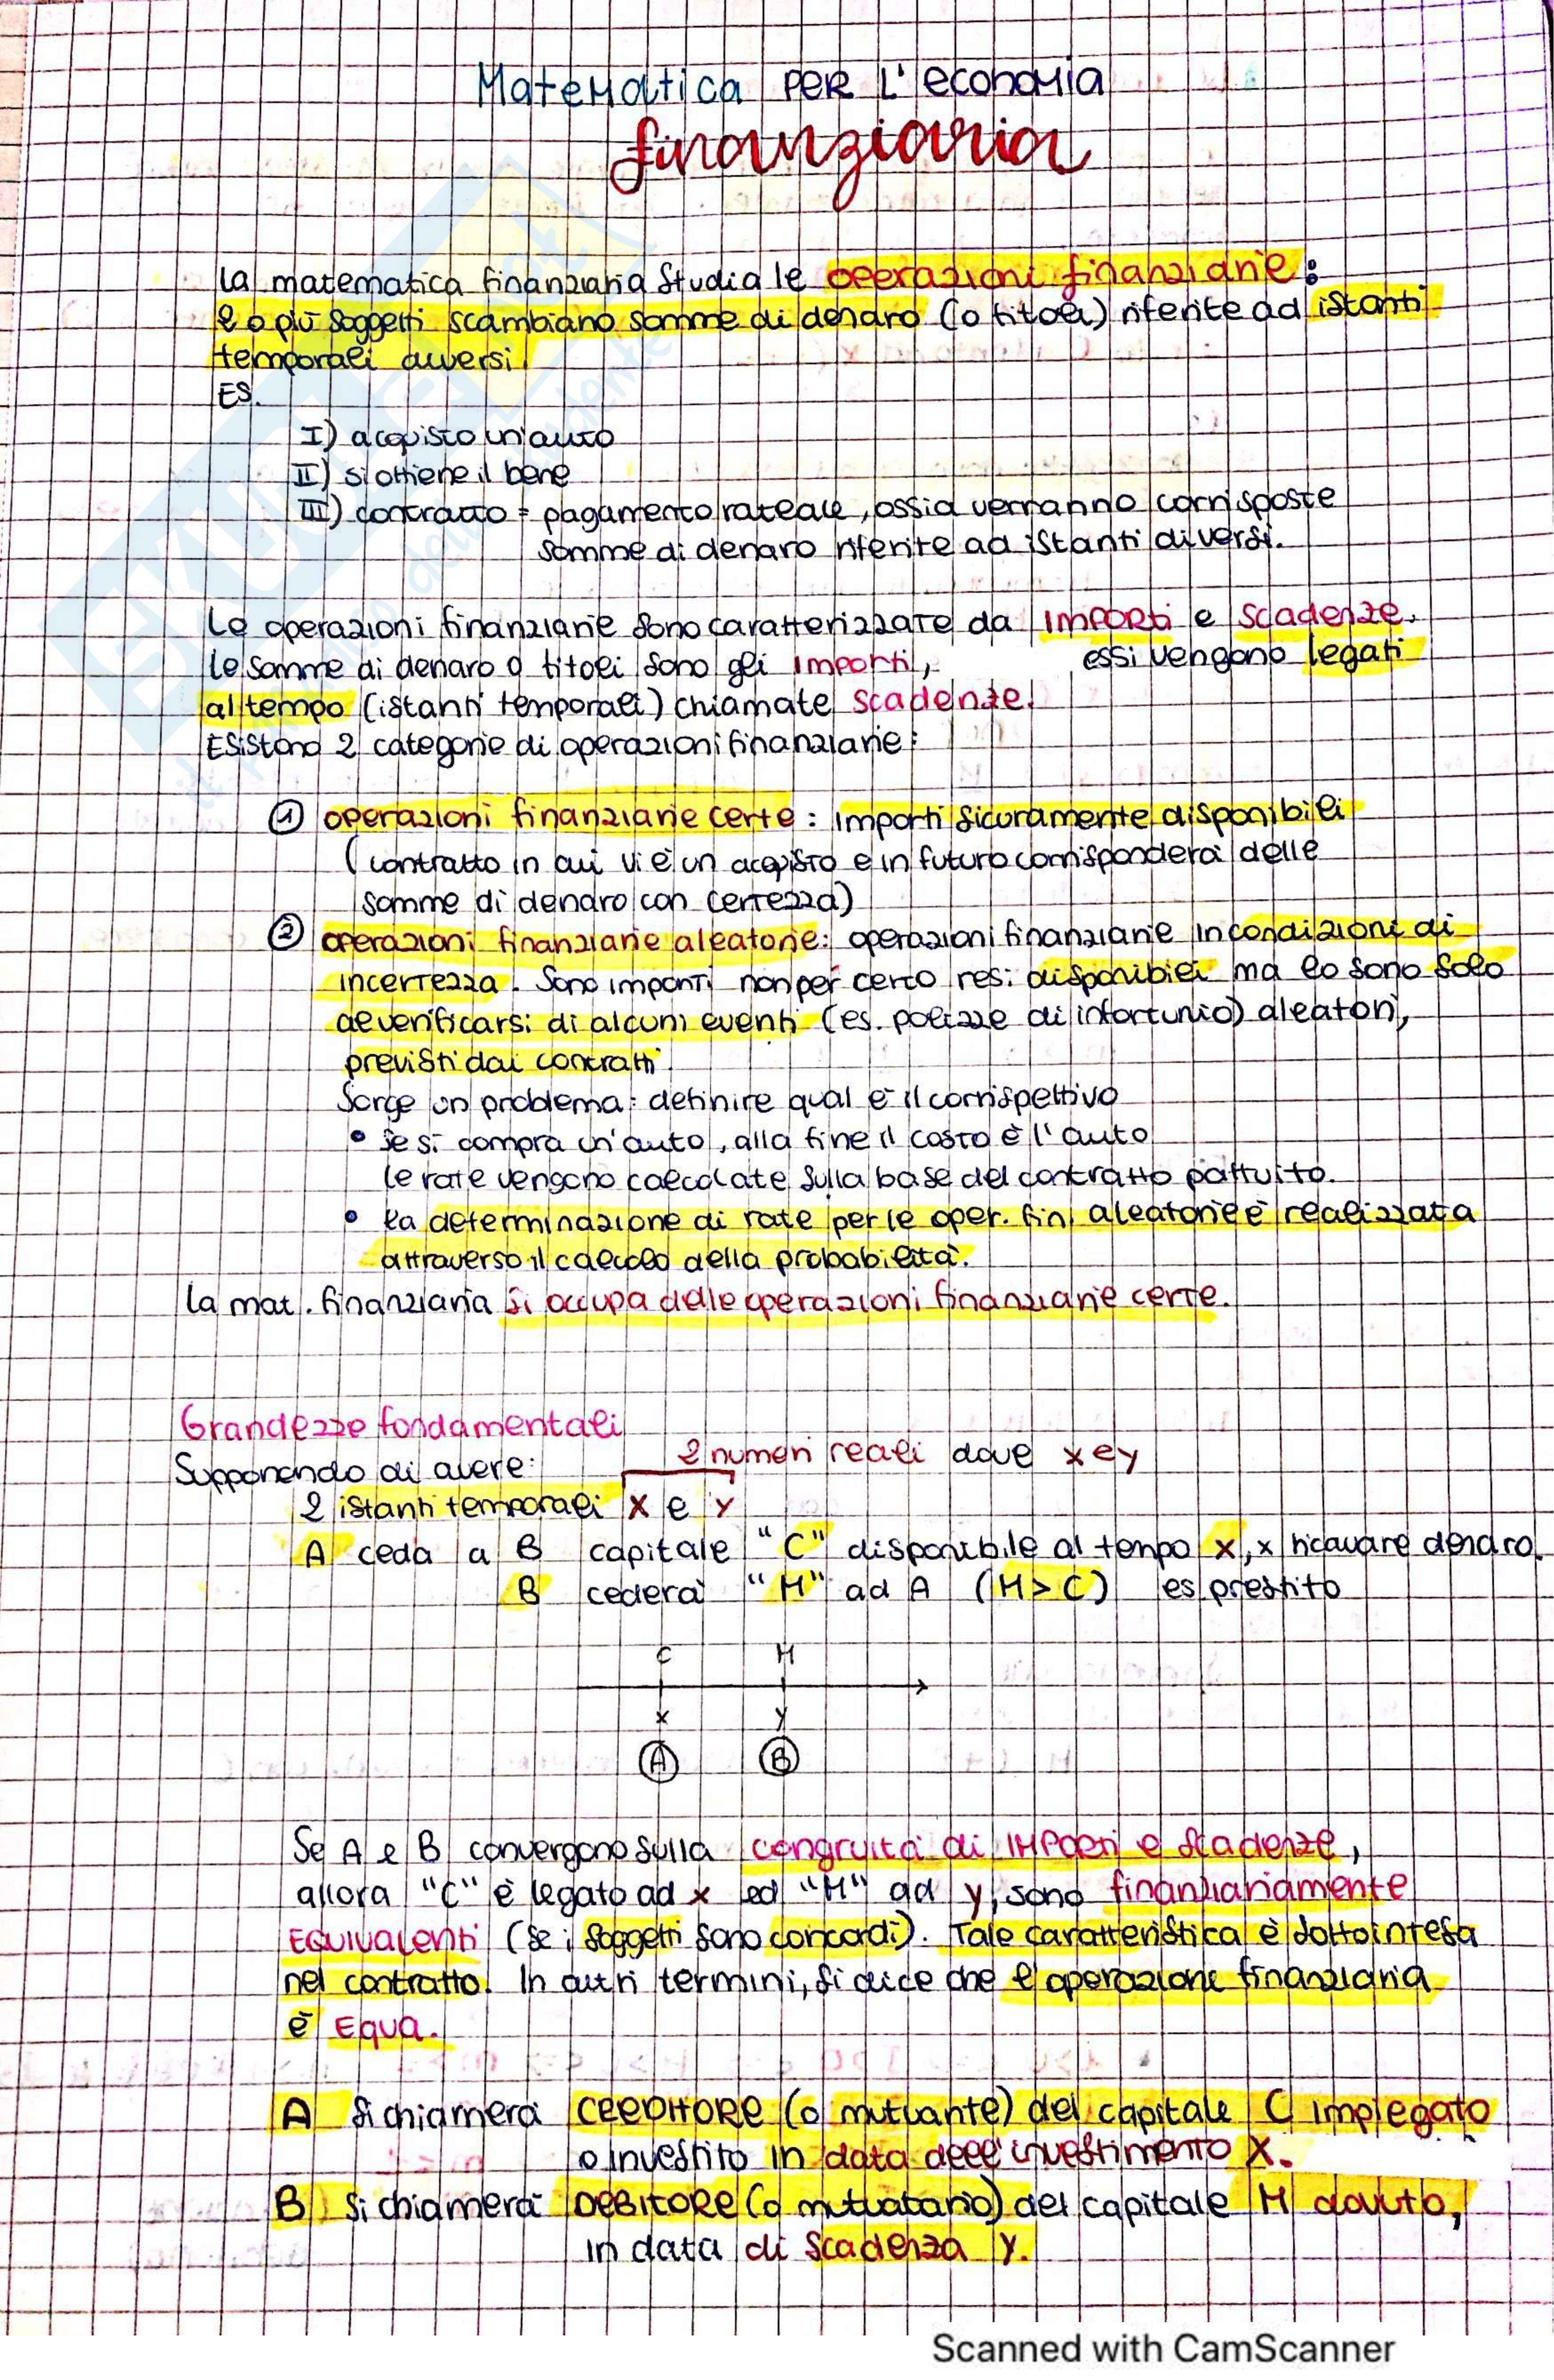 Matematica PER L'economia
finanziaria
La matematica finanziaria studia le operazioni finanziarie:
2 o più soggetti scambiano somme di denaro (o titoli) riferite ad istanti
temporali diversi.
ES.
I) acquisto un'auto
II) si ottiene il bene
III) contratto = pagamento rateale, ossia verranno corrisposte
somme di denaro riferite ad istanti diversi.
Le operazioni finanziarie sono caratterizzate da IMPORTI e scadenze.
Le somme di denaro o titoli sono gli importi, essi vengono legati
al tempo (istanti temporali) chiamate scadenze.
Esistono 2 categorie di operazioni finanziarie:
① operazioni finanziarie certe: importi sicuramente disponibili
(contratto in cui vi è un acquisto e in futuro corrisponderà delle
somme di denaro con certezza)
② operazioni finanziarie aleatorie: operazioni finanziarie in condizioni di
incertezza. Sono importi non per certo resi disponibili ma lo sono solo
al verificarsi di alcuni eventi (es. polizze di infortunio) aleatori,
previsti dai contratti.
Sorge un problema: definire qual è il corrispettivo
• se si compra un'auto, alla fine il costo è l'auto
le rate vengono calcolate sulla base del contratto pattuito.
• la determinazione di rate per le oper. fin. aleatorie è realizzata
attraverso il calcolo della probabilità.
La mat. finanziaria si occupa delle operazioni finanziarie certe.
Grandezze fondamentali
2 numeri reali dove x e y
Supponendo di avere:
2 istanti temporali x e y
A ceda a B capitale "C" disponibile al tempo x, x ricavare denaro.
B cederà "M" ad A (M > C) es. prestito
C M
x y
A B
Se A e B convergono sulla congruità di IMPORTI e scadenze,
allora "C" è legato ad x ed "M" ad y, sono finanziariamente
EQUIVALENTI (se i soggetti sono concordi). Tale caratteristica è sottointesa
nel contratto. In altri termini, si dice che l'operazione finanziaria
è EQUA.
A si chiamerà CREDITORE (o mutuante) del capitale C impiegato
o investito in data dell'investimento X.
B si chiamerà DEBITORE (o mutuatario) del capitale M dovuto,
in data di scadenza y.
Scanned with CamScanner